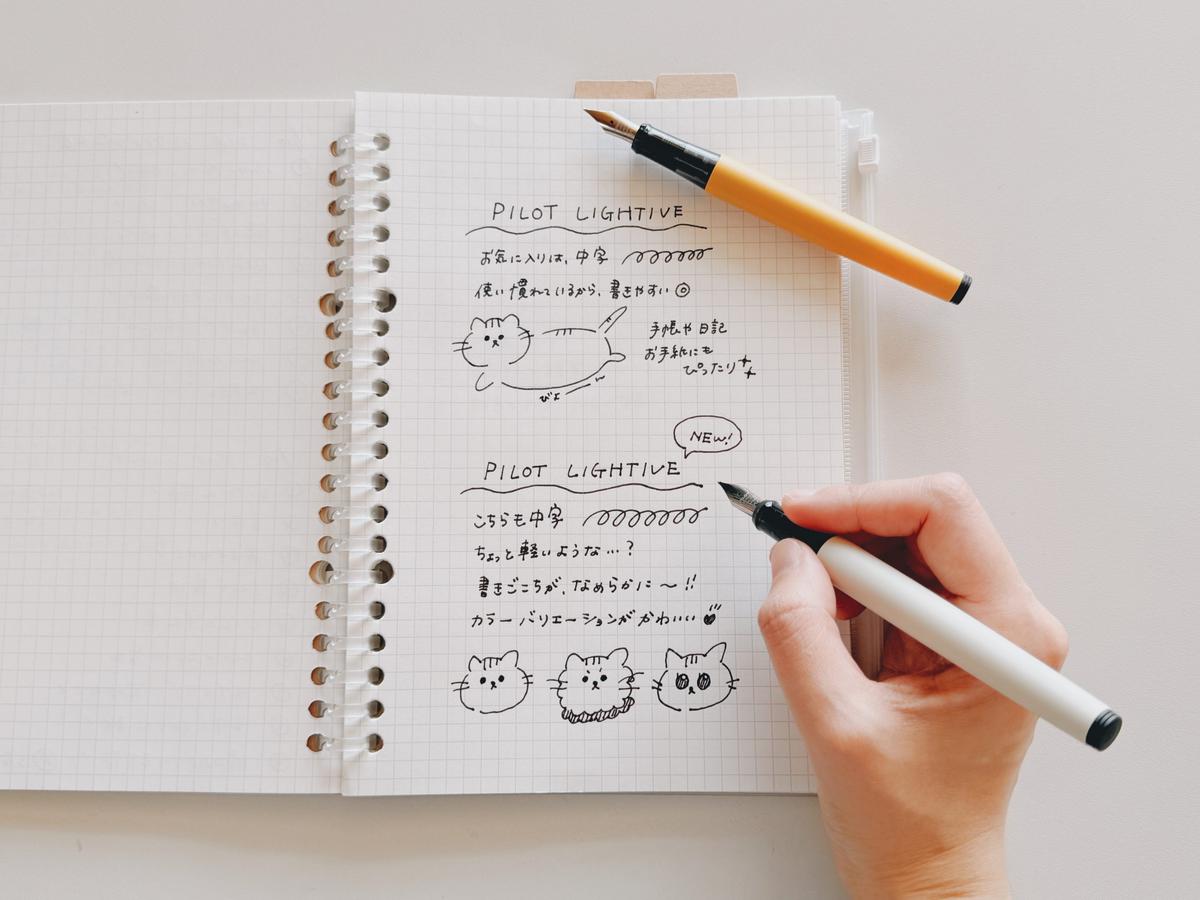 PILOT LIGHTIVE
お気に入りは、中字
使い慣れているから、書きやすい
手帳や日記
お手紙にも
ぴったり
びよーん
NEW!
PILOT LIGHTIVE
こちらも中字
ちょっと軽いような…？
書きごこちが、なめらかに〜!!
カラーバリエーションがかわいい